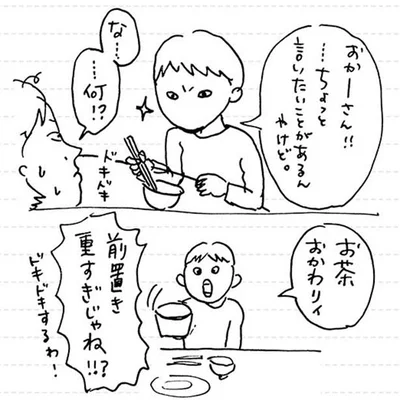 おかーさん!!
…ちょっと
言いたいことがあるん
やけど。
な…
……何!?
ドキドキ
お茶
おかわりィ
前置き
重すぎじゃね!!?
ドキドキするわ!